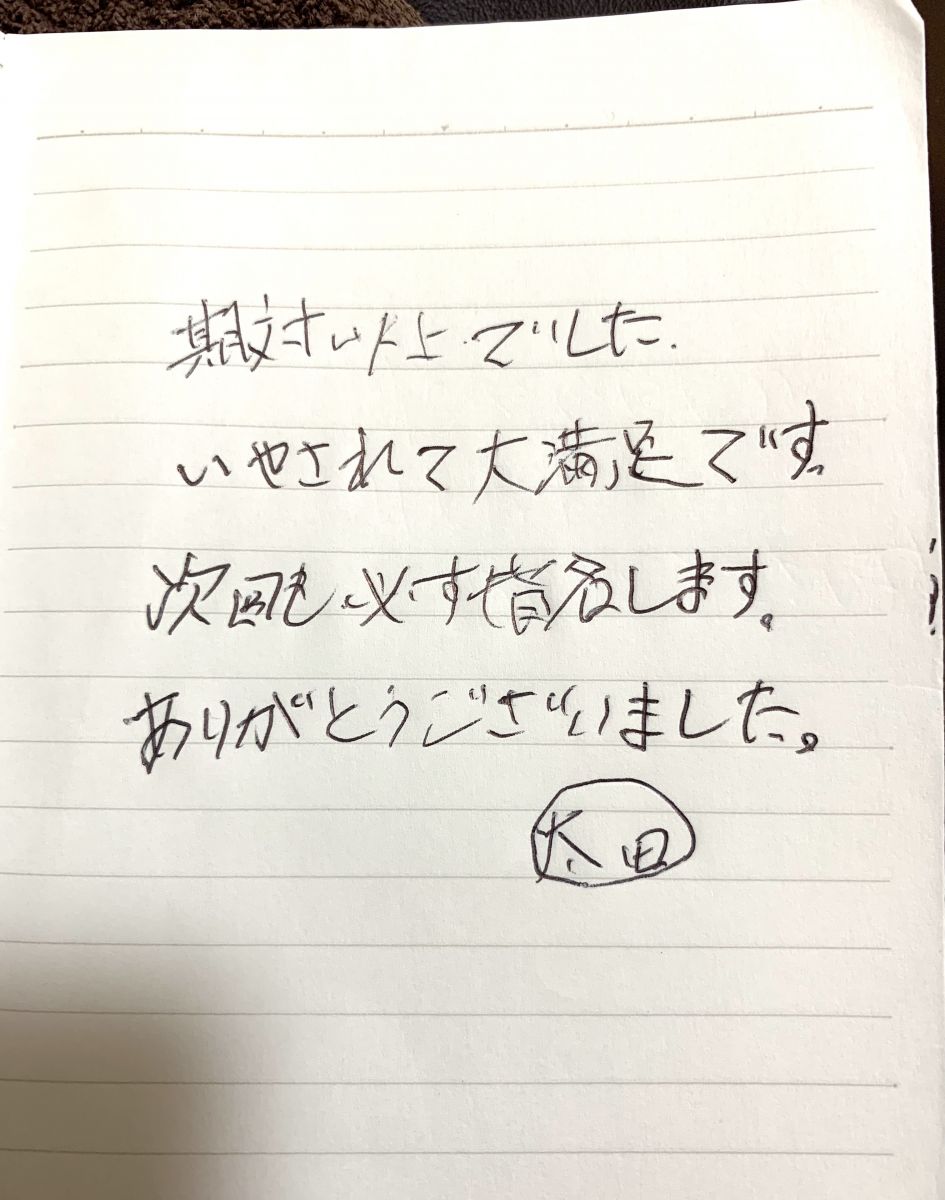 期対以上でした.
いやされて大満足です。
次回も必す指名します。
ありがとうございました。
太田